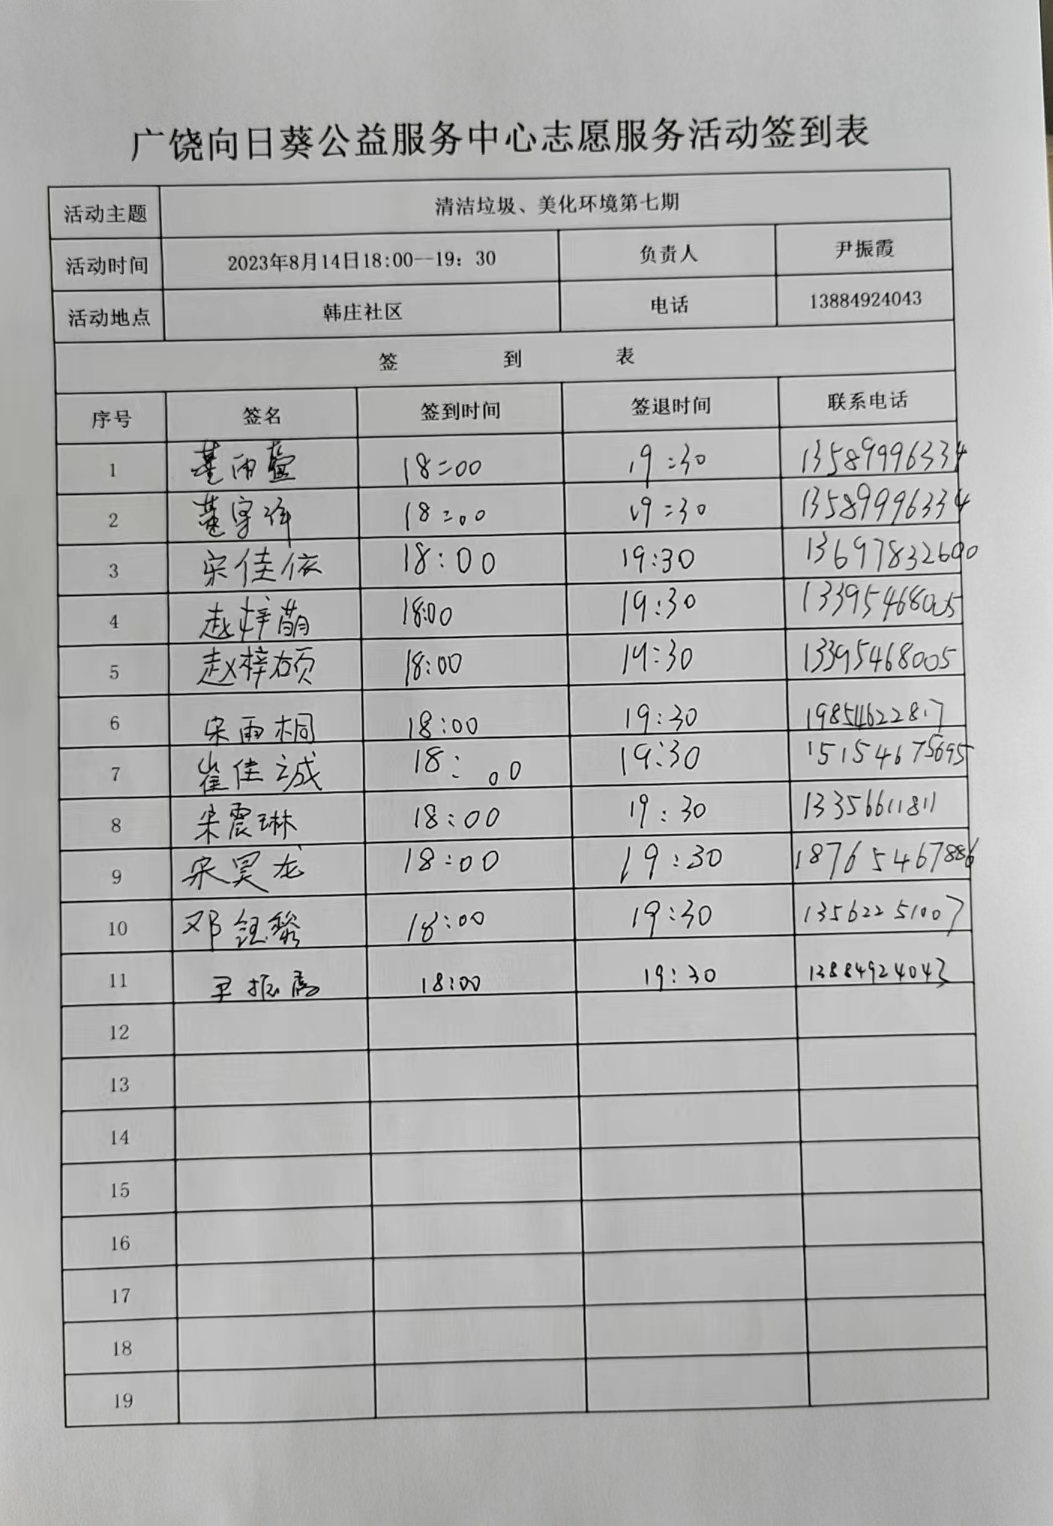 广饶向日葵公益服务中心志愿服务活动签到表
活动主题 清洁垃圾、美化环境第七期
活动时间 2023年8月14日18:00--19：30 负责人 尹振霞
活动地点 韩庄社区 电话 13884924043
签 到 表
序号 签名 签到时间 签退时间 联系电话
1 董雨萱 18:00 19:30 13589996334
2 董宇 18:00 19:30 13589996334
3 宋佳依 18:00 19:30 13697832600
4 赵梓萌 18:00 19:30 13395468005
5 赵梓硕 18:00 19:30 13395468005
6 宋雨桐 18:00 19:30 19854622817
7 崔佳诚 18:00 19:30 15154675695
8 宋震琳 18:00 19:30 13356611811
9 宋昊龙 18:00 19:30 18765467886
10 邓钰 18:00 19:30 13562251007
11 尹振霞 18:00 19:30 13884924043
12
13
14
15
16
17
18
19